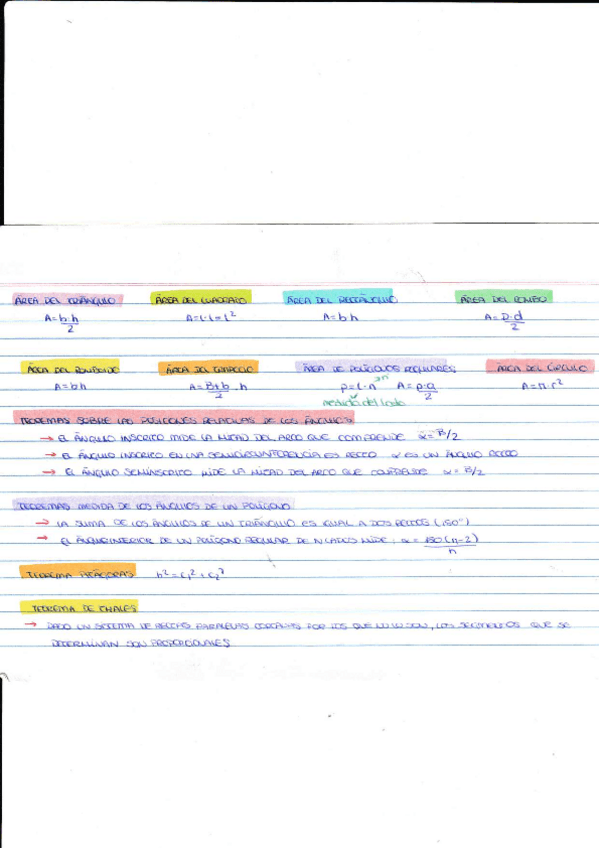 ÁREA DEL TRIÁNGULO ÁREA DEL CUADRADO ÁREA DEL RECTÁNGULO ÁREA DEL ROMBO
A = b·h/2 A = l·l = l² A = b·h A = D·d/2
ÁREA DEL ROMBOIDE ÁREA DEL TRAPECIO ÁREA DE POLÍGONOS REGULARES ÁREA DEL CÍRCULO
A = b·h A = B+b/2 · h p = l·n A = p·a/2 A = π·r²
medida del lado
TEOREMAS SOBRE LAS POSICIONES RELATIVAS DE LOS ÁNGULOS
→ EL ÁNGULO INSCRITO MIDE LA MITAD DEL ARCO QUE COMPRENDE α = B/2
→ EL ÁNGULO INSCRITO EN UNA SEMICIRCUNFERENCIA ES RECTO α ES UN ÁNGULO RECTO
→ EL ÁNGULO SEMIINSCRITO MIDE LA MITAD DEL ARCO QUE COMPRENDE α = B/2
TEOREMAS MEDIDA DE LOS ÁNGULOS DE UN POLÍGONO
→ LA SUMA DE LOS ÁNGULOS DE UN TRIÁNGULO ES IGUAL A DOS RECTOS (180°)
→ EL ÁNGULO INTERIOR DE UN POLÍGONO REGULAR DE N LADOS MIDE: α = 180(n-2)/n
TEOREMA PITÁGORAS h² = c₁² + c₂²
TEOREMA DE THALES
→ DADO UN SISTEMA DE RECTAS PARALELAS CORTADAS POR LOS QUE NO LO SON, LOS SEGMENTOS QUE SE
DETERMINAN SON PROPORCIONALES